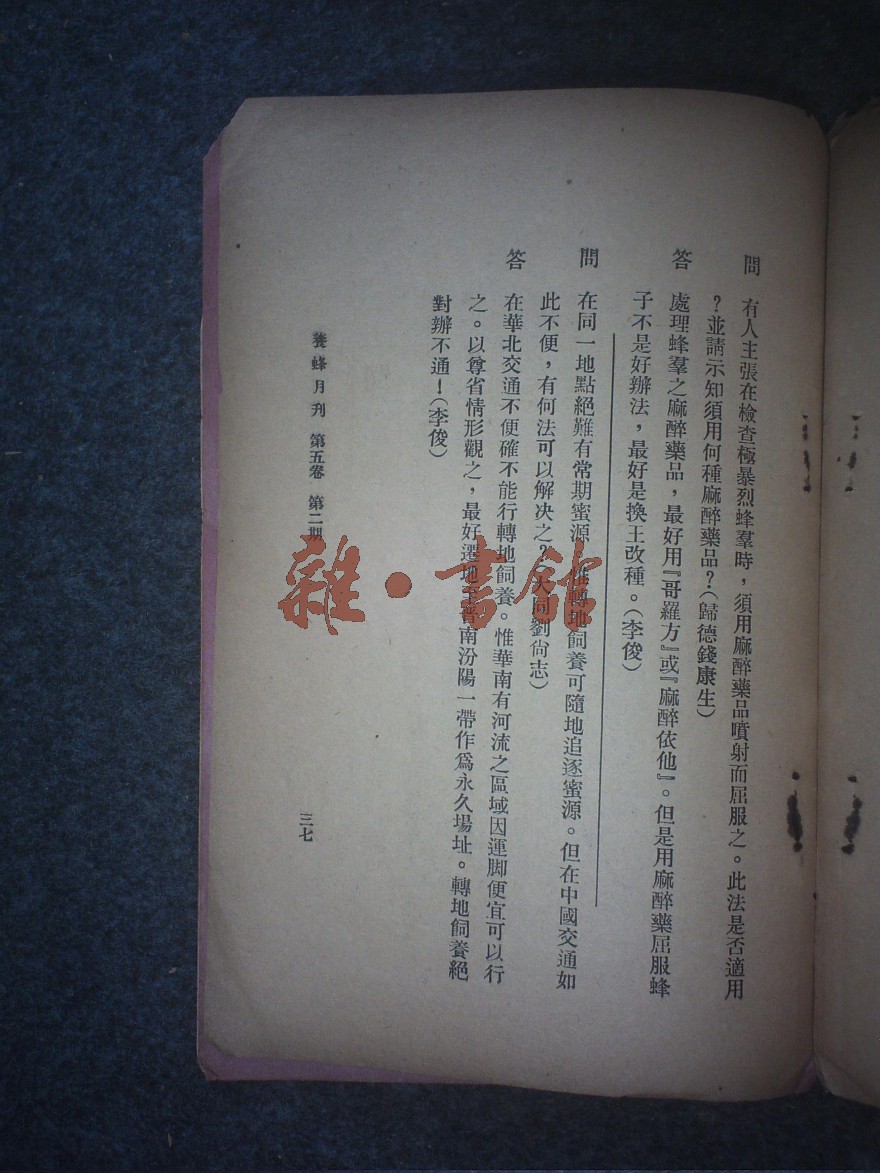 問　有人主張在檢查極暴烈蜂羣時，須用麻醉藥品噴射而屈服之。此法是否適用
？並請示知須用何種麻醉藥品？（歸德錢康生）
答　處理蜂羣之麻醉藥品，最好用『哥羅方』或『麻醉依他』。但是用麻醉藥屈服蜂
子不是好辦法，最好是換王改種。（李俊）
問　在同一地點絕難有常期蜜源，惟轉地飼養可隨地追逐蜜源。但在中國交通如
此不便，有何法可以解决之？（大同劉尙志）
答　在華北交通不便確不能行轉地飼養。惟華南有河流之區域因運脚便宜可以行
之。以尊省情形觀之，最好遷地至晋南汾陽一帶作爲永久場址。轉地飼養絕
對辦不通！（李俊）
養蜂月刋　第五卷　第二期
三七
雜·書館